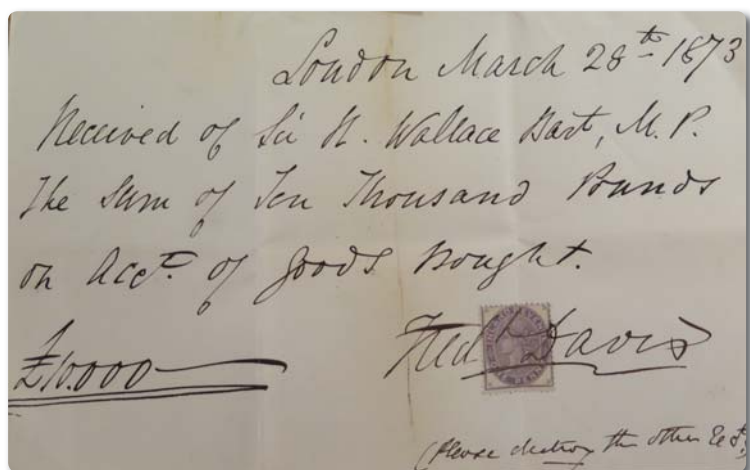 London March 28th 1873
Received of Sir R. Wallace Bart, M. P.
The Sum of Ten Thousand Pounds
on Acct. of goods Bought.
£10.000
Fred Davis
(Please destroy the other